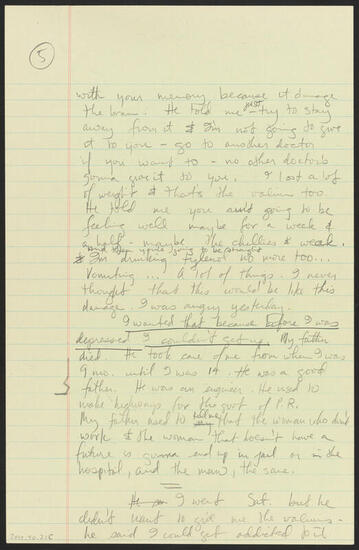 5
with your memory because it damage
the brain. He told me just try to stay
away from it & I'm not going to give
it to you - go to another doctor
if you want to - no other doctors
gonna give it to you. I lost a lot
of weight & that's the valium too
He told me you aint going to be
feeling well maybe for a week &
a half - maybe the chillies & weak.
and then you're going to be alright
& I'm drinking no more too...
Vomiting... A lot of things. I never
thought that this would be like this
damage. I was angry yesterday.
I wanted that because before I was
depressed I couldn't get up. My father
died. He took care of me from when I was
9 mo. until I was 14. He was a good
father. He was an engineer. He used to
make highways for the govt of P.R.
My father used to tell me that the woman who din't
work & the woman that doesn't have a
future is gonna end up in jail or in the
hospital, and the man, the same.
I went Sat. but he
didn't want to give me the valiums -
he said I could get addicted to it